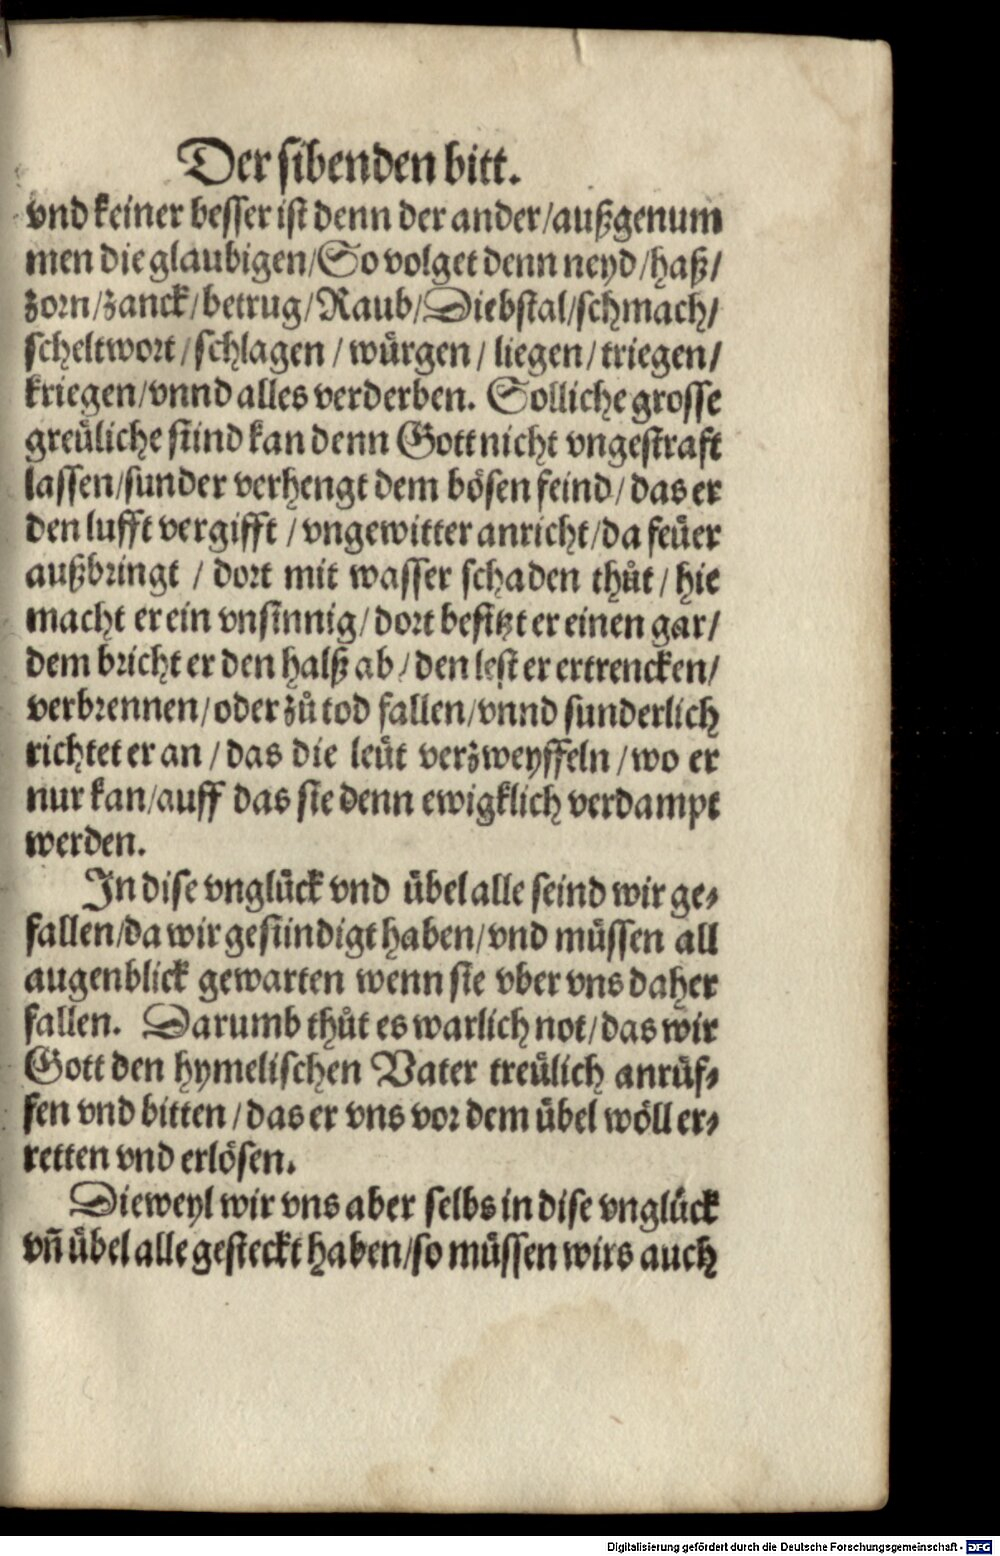 Der sibenden bitt.
vnd keiner besser ist denn der ander/außgenum
men die glaubigen/So volget denn neyd/haß/
zorn/zanck/betrug/Raub/Diebstal/schmach/
scheltwort/schlagen/würgen/liegen/triegen/
kriegen/vnnd alles verderben. Solliche grosse
greüliche sünd kan denn Gott nicht vngestraft
lassen/sunder verhengt dem bösen feind/das er
den lufft vergifft/vngewitter anricht/da feüer
außbringt/dort mit wasser schaden thůt/hie
macht er ein vnsinnig/dort besitzt er einen gar/
dem bricht er den halß ab/den lest er ertrencken/
verbrennen/oder zů tod fallen/vnnd sunderlich
richtet er an/das die leüt verzweyffeln/wo er
nur kan/auff das sie denn ewigklich verdampt
werden.
In dise vnglück vnd übel alle seind wir ge-
fallen/da wir gesündigt haben/vnd müssen all
augenblick gewarten wenn sie vber vns daher
fallen. Darumb thůt es warlich not/das wir
Gott den hymelischen Vater treülich anrüf-
fen vnd bitten/das er vns vor dem übel wöll er-
retten vnd erlösen.
Dieweyl wir vns aber selbs in dise vnglück
vñ übel alle gesteckt haben/so müssen wirs auch
Digitalisierung gefördert durch die Deutsche Forschungsgemeinschaft - DFG